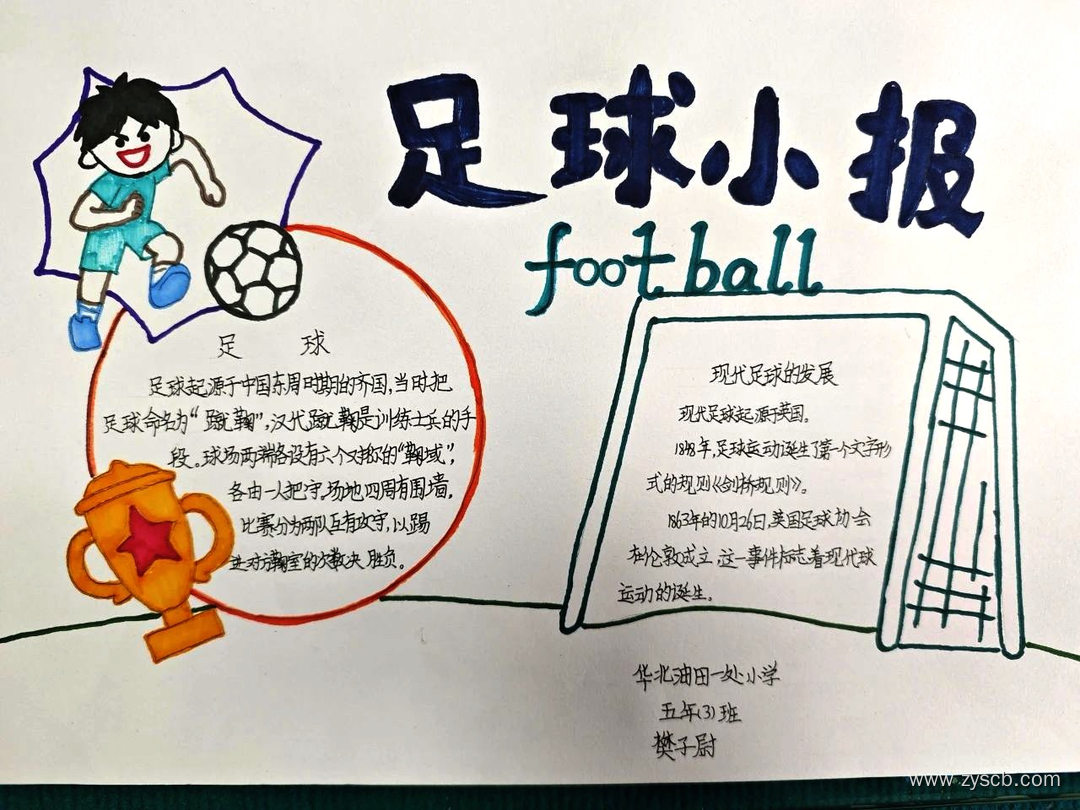 足球小报
football
足 球
足球起源于中国东周时期的齐国,当时把
足球命名为“蹴鞠”,汉代蹴鞠是训练士兵的手
段。球场两端各设有六个对称的“鞠域”,
各由一人把守。场地四周有围墙,
比赛分为两队互有攻守,以踢
进对方鞠室的次数决胜负。
现代足球的发展
现代足球起源于英国。
1848年,足球运动诞生了第一个文字形
式的规则《剑桥规则》。
1863年的10月26日,英国足球协会
在伦敦成立,这一事件标志着现代球
运动的诞生。
华北油田一处小学
五年(3)班
樊子尉
www.zyscb.com